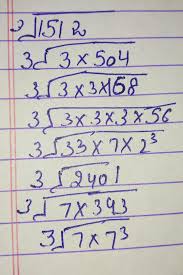 3√1512
3√3×504
3√3×3×168
3√3×3×3×56
3√33×7×2³
3√2401
3√7×343
3√7×7³